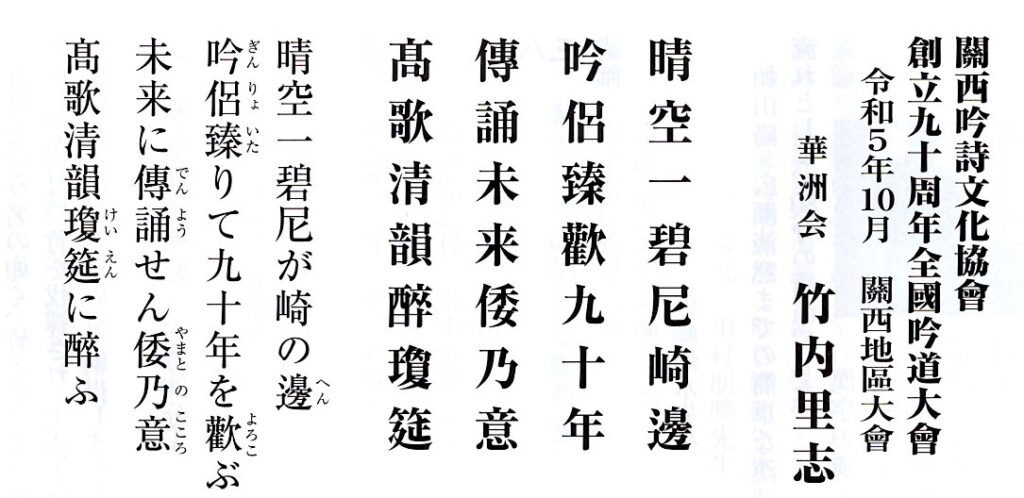 關西吟詩文化協會
創立九十周年全國吟道大會
令和5年10月 關西地區大會
華洲会 竹内里志
晴空一碧尼崎邊
吟侶臻歡九十年
傳誦未来倭乃意
髙歌清韻醉瓊筵
晴空一碧尼が崎の邊へん
吟ぎん侶りょ臻いたりて九十年を歡よろこぶ
未来に傳でん誦ようせん倭やまと乃の意こころ
髙歌清韻瓊けい筵えんに醉ふ